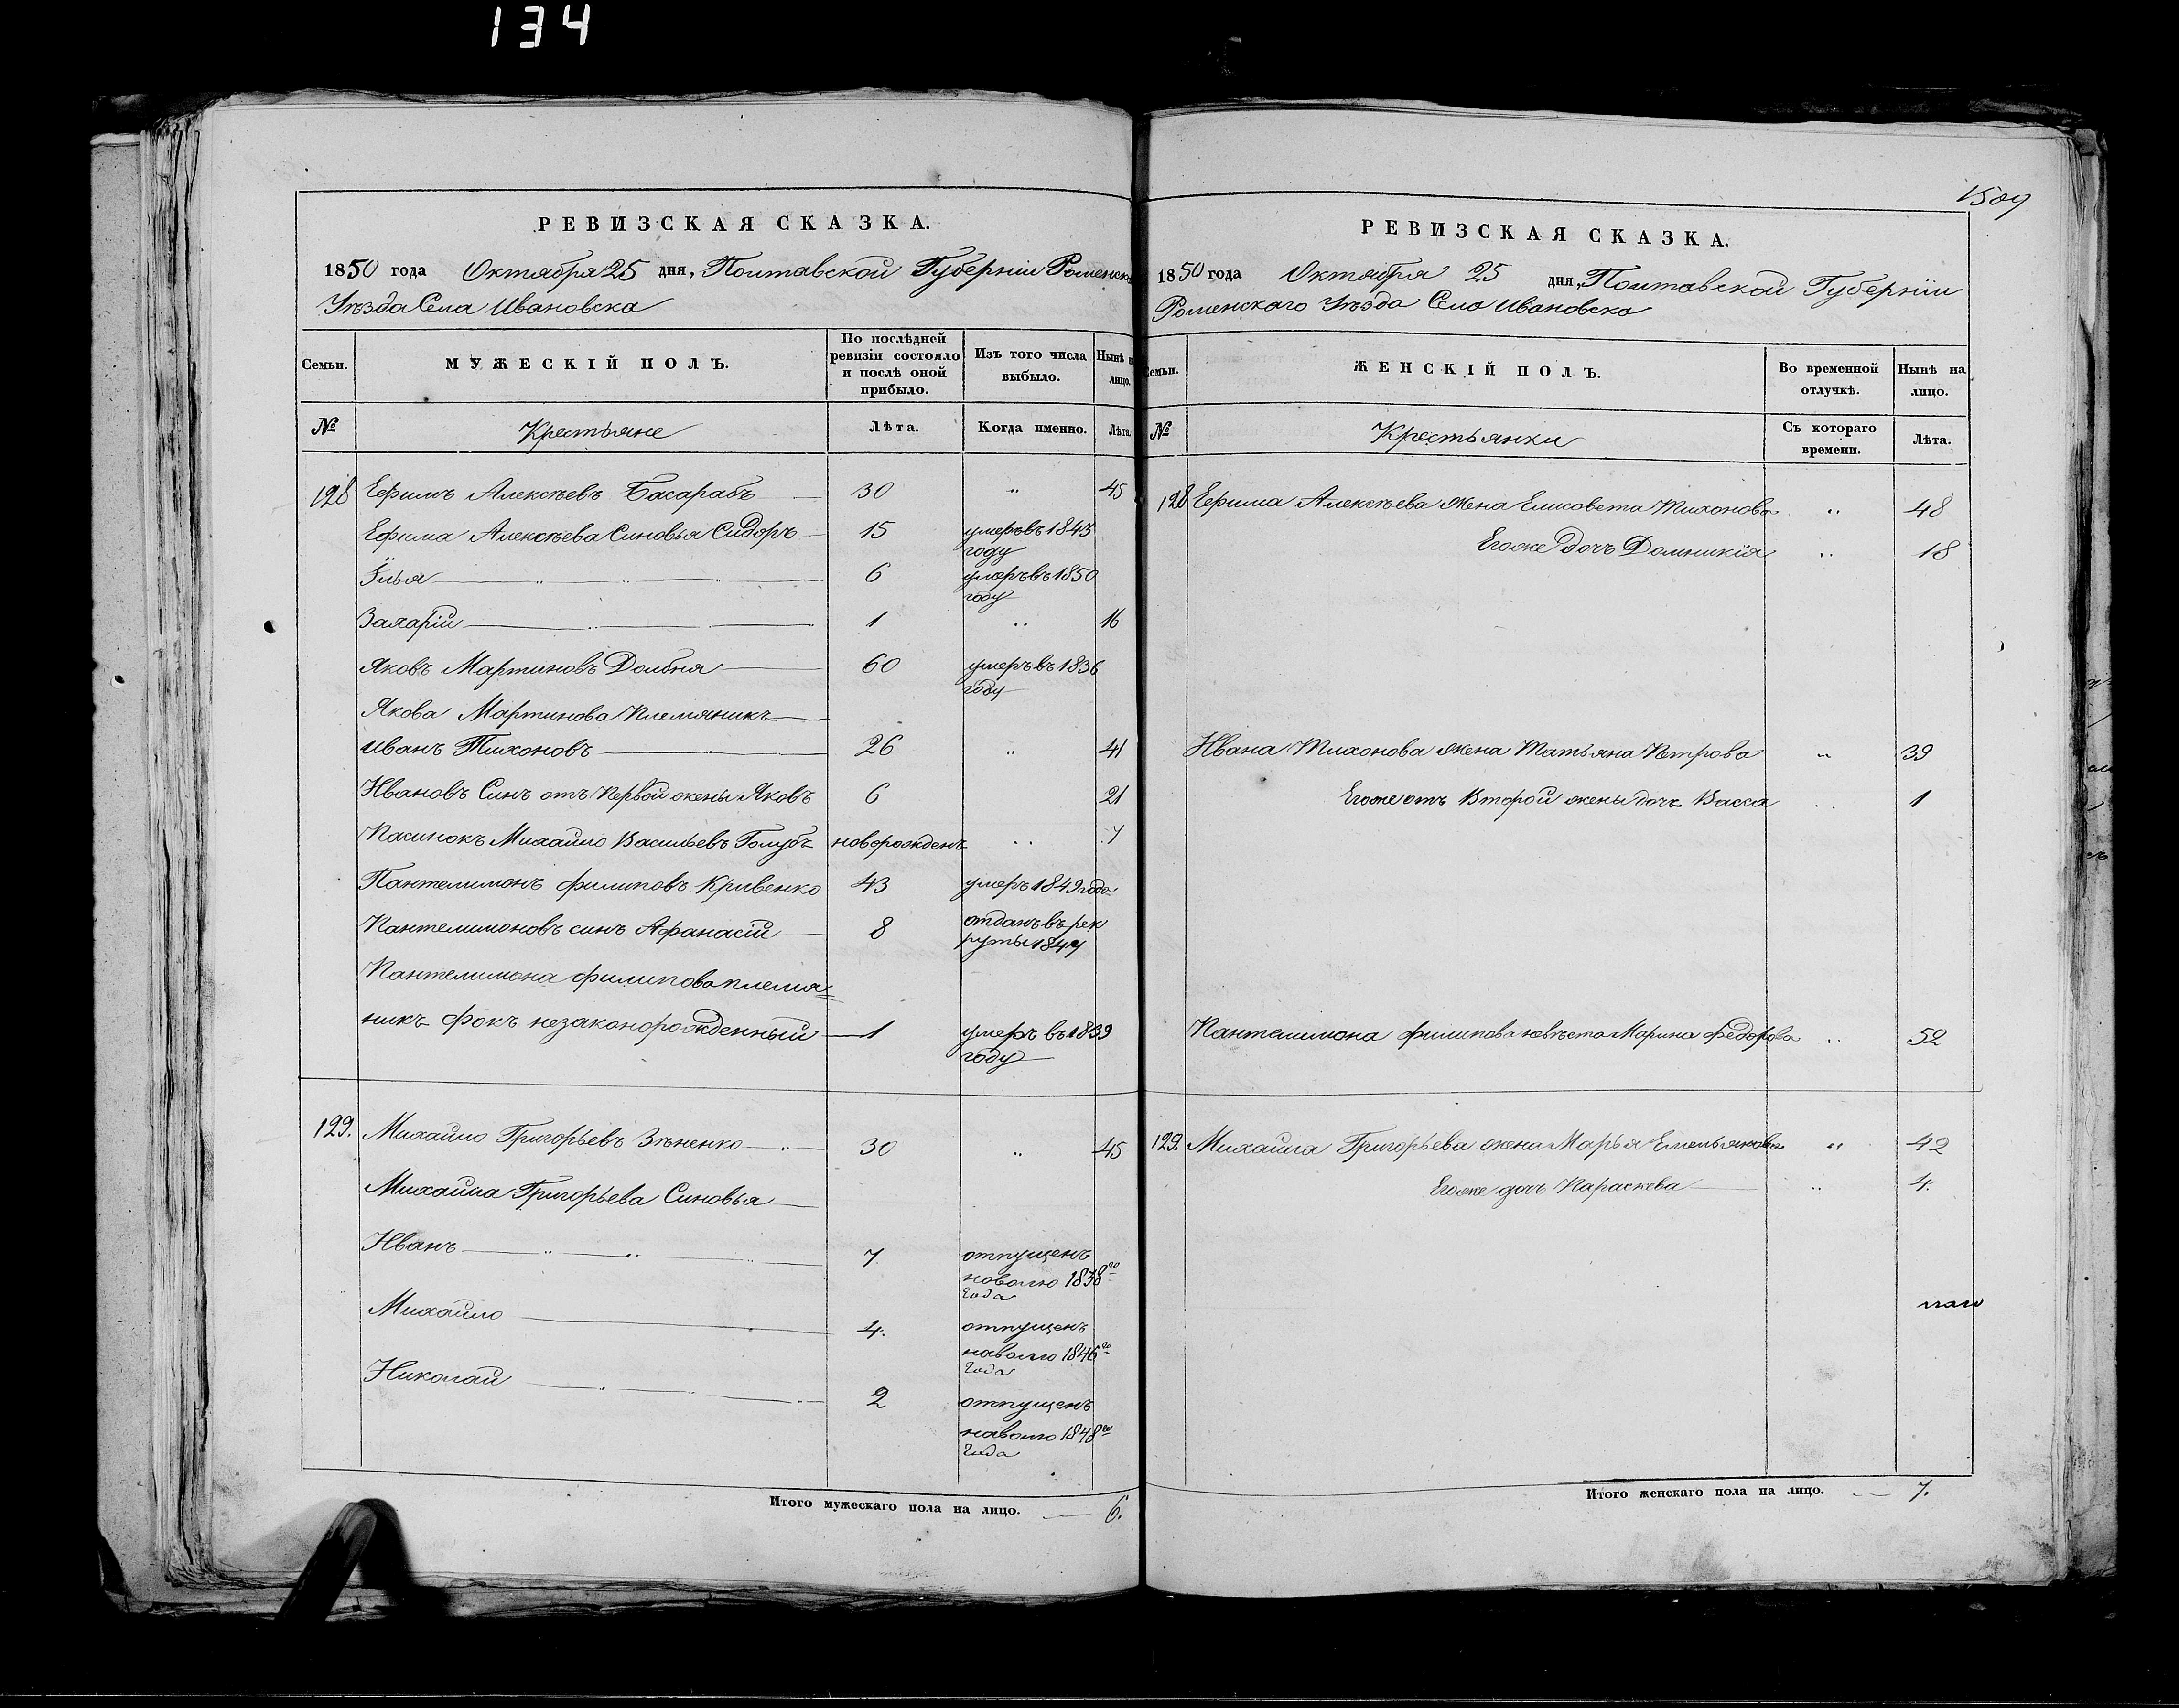 134
РЕВИЗСКАЯ СКАЗКА.
1850 года Октября 25 дня, Полтавской Губерніи Роменска
Уѣзда Села Ивановска
Семьи.
МУЖЕСКІЙ ПОЛЪ.
По послѣдней ревизіи состояло и послѣ оной прибыло.
Изъ того числа выбыло.
Нынѣ н лицо.
№
Крестьяне
Лѣта.
Когда именно.
Лѣта.
128 Ефимъ Алексѣевъ Басарабъ 30 „ 45
Ефима Алексѣева Синовья Сидоръ 15 умеръ въ 1843
году
Илья 6 умеръ въ 1850
году
Захарій 1 „ 16
Яковъ Мартиновъ Долбня 60 умеръ въ 1836
году
Якова Мартинова Племяникъ
Иванъ Тихоновъ 26 „ 41
Ивановъ Синъ отъ Первой жены Яковъ 6 21
Пасинокъ Михайло Васильевъ Голубъ новорожденъ „ 7
Пантелимонъ Филиповъ Кривенко 43 умеръ 1849 года
Пантелимоновъ синъ Афанасій 8 отданъ въ рек
руты 1847
Пантелимона Филипова племя=
никъ Фокъ незаконорожденный 1 умеръ въ 1839
году
129. Михайло Григорьевъ Зѣненко 30 „ 45
Михайла Григорьева Синовья
Иванъ 7 отпущенъ
наволю 1838го
года
Михайло 4. отпущенъ
наволю 1846го
года
Николай 2 отпущенъ
наволю 1848го
года
Итого мужескаго пола на лицо. 6.
1509
РЕВИЗСКАЯ СКАЗКА.
1850 года Октября 25 дня, Полтавской Губерніи
Роменскаго Уѣзда Села Ивановска
Семьи.
ЖЕНСКІЙ ПОЛЪ.
Во временной отлучкѣ.
Нынѣ на лицо.
№
Крестьянки
Съ котораго времени.
Лѣта.
128 Ефима Алексѣева жена Елисовета Тихонова „ 48
Егоже дочъ Домникія „ 18
Ивана Тихонова жена Татьяна Петрова „ 39
Егоже отъ Второй жены дочъ Васса „ 1
Пантелимона Филипова невѣста Марина Федорова „ 52
129. Михайла Григорьева жена Марья Емельянова „ 42
Егоже дочъ Параскева „ 4.
Итого женскаго пола на лицо. 7.